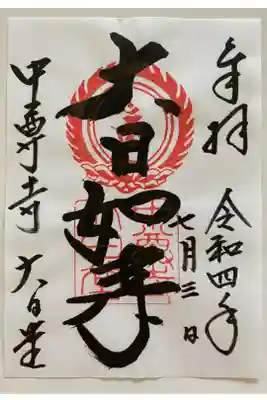 奉拝
令和四年
七月三日
大日如来
中尊寺 大日堂